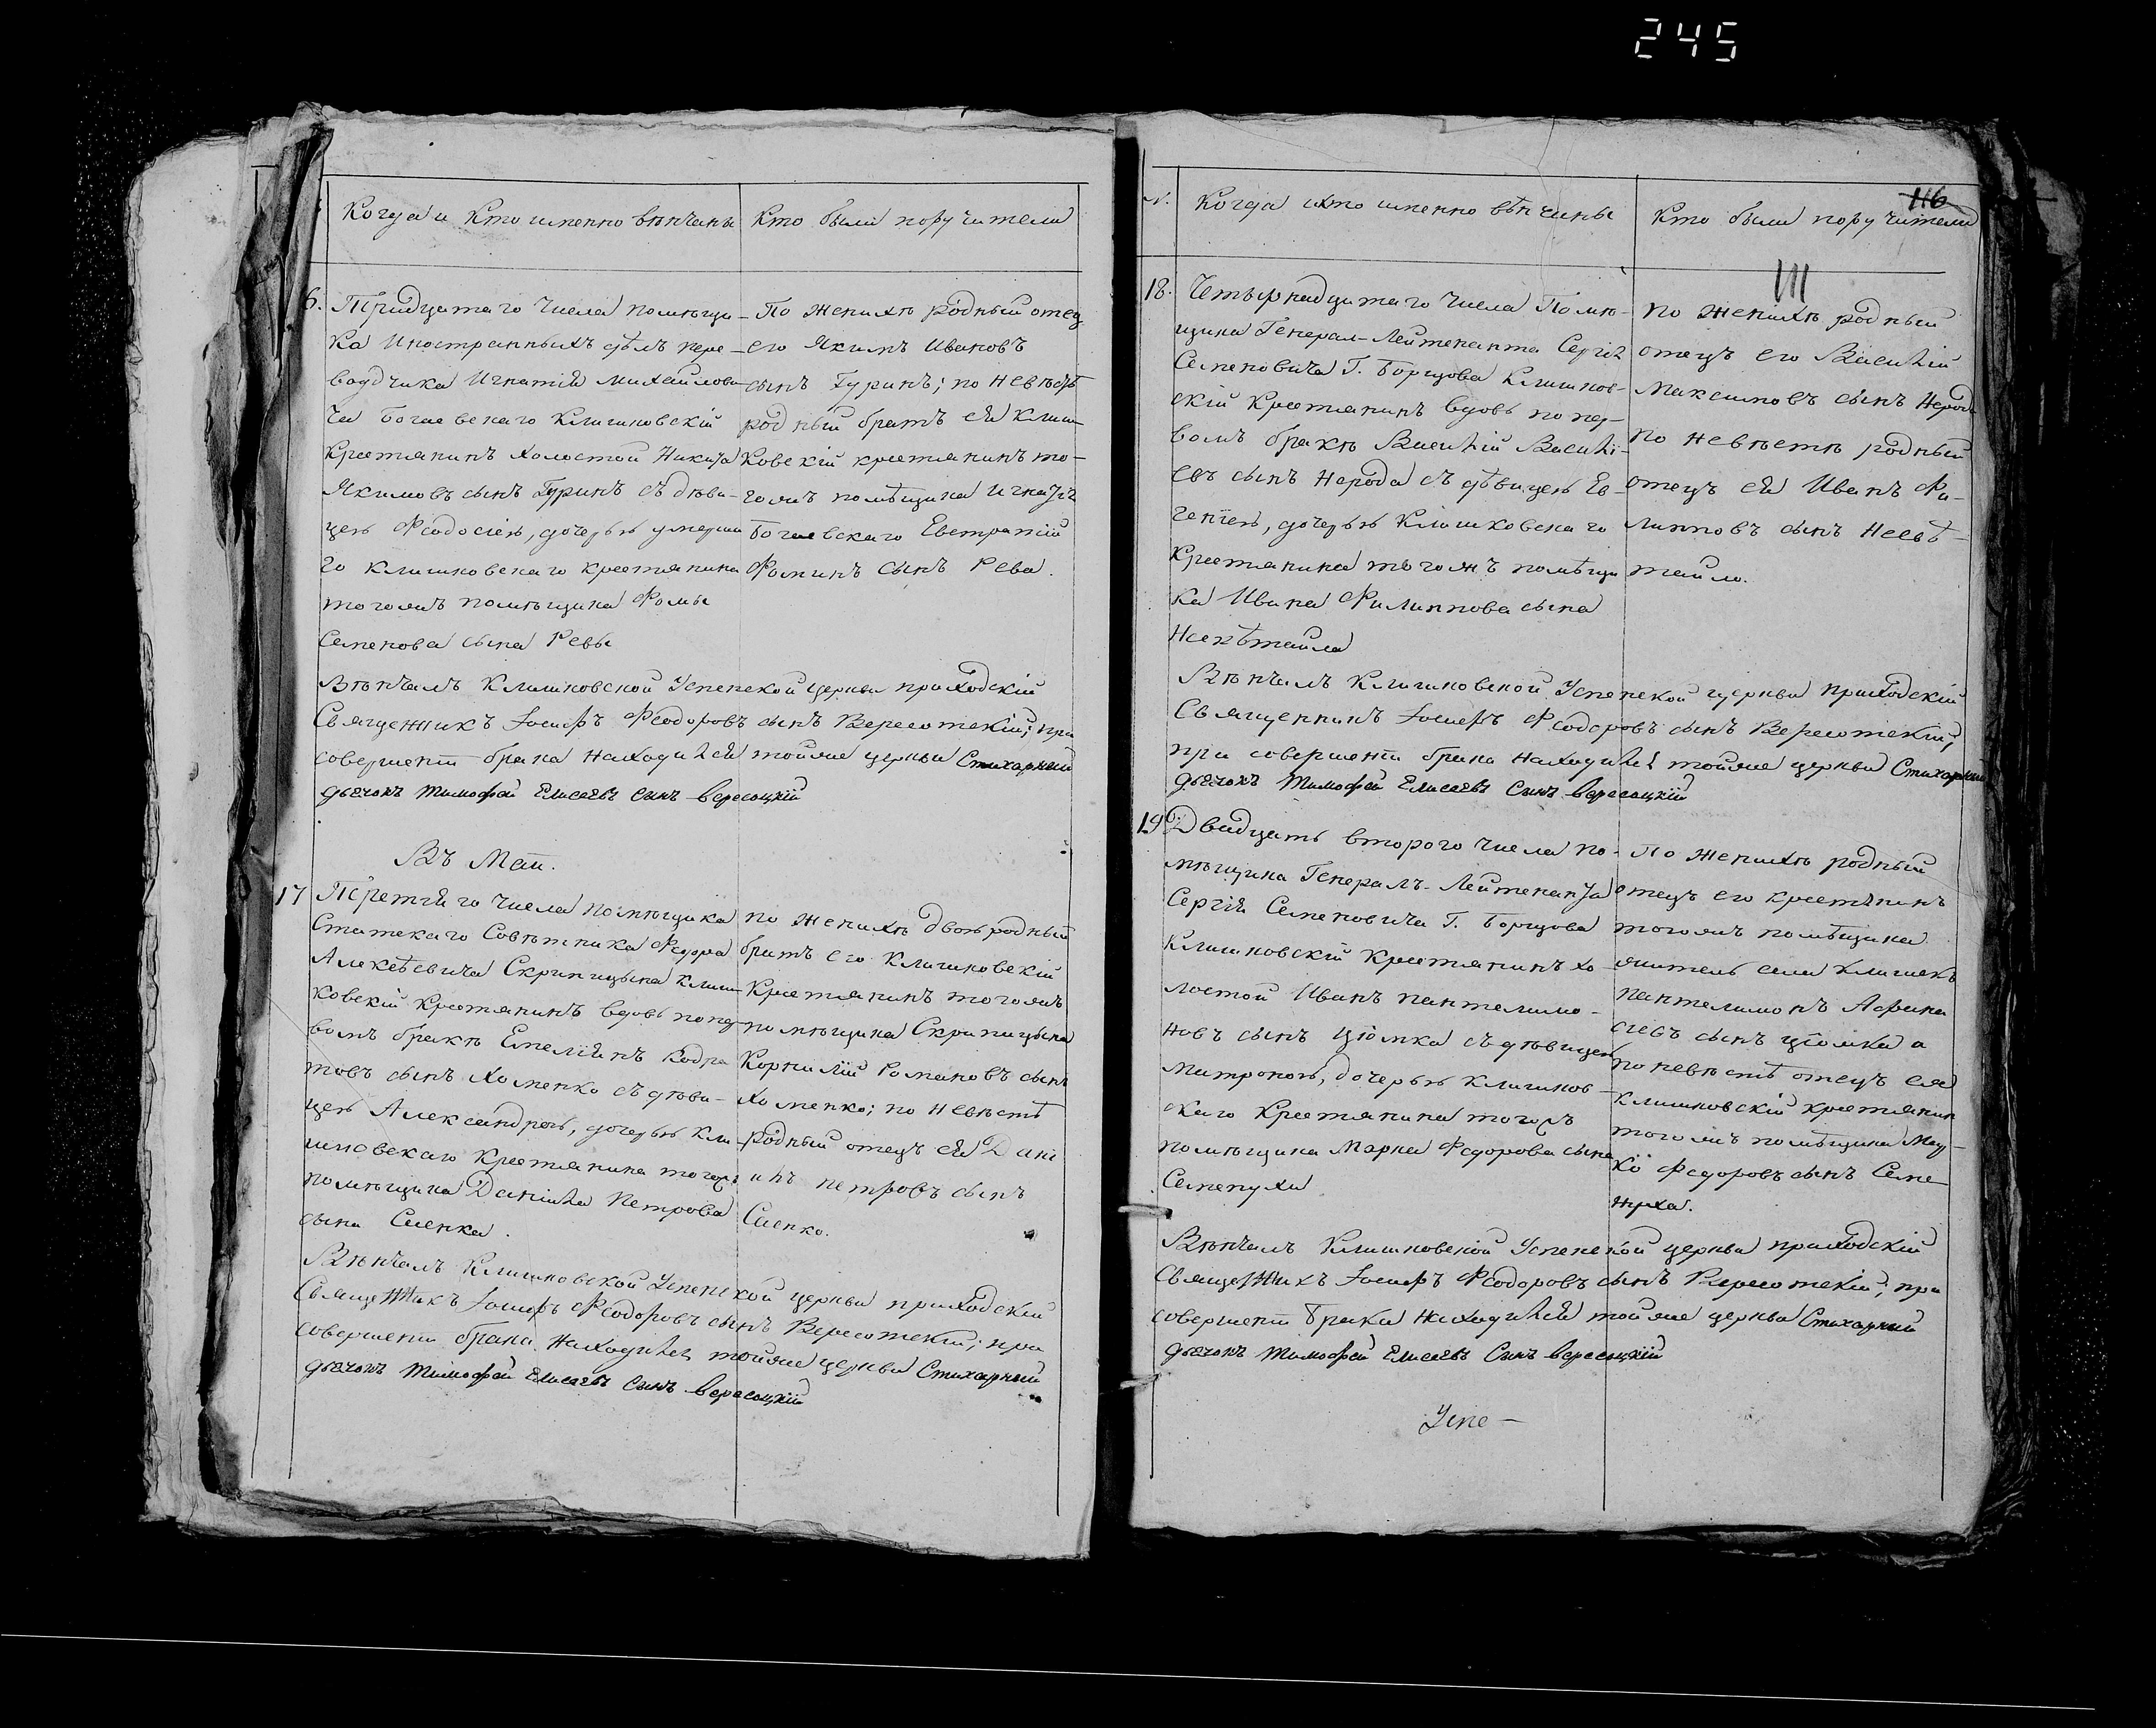 245
Когда и кто именно вѣнчаны
Кто были поручители
6. Тридцатаго числа помѣщи-
ка Иностранныхъ дѣлъ пере-
водчика Игнатія Михайлови-
ча Богаевскаго Клишковскій
крестьянинъ холостой Никита
Якимовъ сынъ Гуринъ съ дѣви-
цею Феодосіею, дочерью умерша
го клишковскаго крестьянина
тогожъ помѣщика Фомы
Семенова сына Ревы
По женихѣ родный отец
его Якимъ Ивановъ
сынъ Гуринъ; по невѣстѣ
родный братъ ея Клиш-
ковскій крестьянинъ то-
гожъ помѣщика Игнатія
Богаевскаго Евстратій
Фоминъ сынъ Рева.
Вѣнчалъ Клишковской Успенской церкви приходскій
Священникъ Іосифъ Феодоровъ сынъ Вересотскій; при
совершеніи брака находился тойже церкви Стихарный
дьячокъ Тимофей Елисеевъ сынъ Вересоцкій
Въ Маіи.
17 Третяго числа помѣщика
Статскаго Совѣтника Федора
Алексѣевича Скрипицына клиш-
ковскій крестьянинъ вдовъ по пер-
вомъ бракѣ Емеліянъ Кодра
товъ сынъ Хоменко съ дѣви-
цею Александрою, дочерью Кли-
шковскаго крестьянина тогожъ
помѣщика Даніила Петрова
сына Саенка.
по женихѣ двоюродный
братъ его Клишковскій
крестьянинъ тогожъ
помѣщика Скрипицына
Корнилій Романовъ сынъ
Хоменко; по невѣстѣ
родный отецъ ея Дані
илъ Петровъ сынъ
Саенко.
Вѣнчалъ Клишковской Успенской церкви приходскій
Священникъ Іосифъ Феодоровъ сынъ Вересотскій; при
совершеніи брака находился тойже церкви Стихарный
дьячокъ Тимофей Елисеевъ сынъ Вересоцкій
116
111
N. Когда и кто именно вѣнчаны
Кто были поручители
18. Четырнадцатаго числа Помѣ-
щика Генерал-Лейтенанта Сергія
Семеновича Г. Борщова Клишков-
скій крестьянинъ вдовъ по пер-
вомъ бракѣ Василій Василі-
евъ сынъ Нерода съ дѣвицею Ев-
геніею, дочерью Клишковскаго
крестьянина тогожъ помѣщи
ка Ивана Филиппова сына
Несвѣтайла
по женихѣ родный
отецъ его Василій
Максимовъ сынъ Нерода
по невѣстѣ родный
отецъ ея Иванъ Фи-
липповъ сынъ Несвѣ-
тайло.
Вѣнчалъ Клишковской Успенской церкви приходскій
Священникъ Іосифъ Феодоровъ сынъ Вересотскій;
при совершеніи брака находился тойже церкви Стихарный
дьячокъ Тимофей Елисеевъ Сынъ Вересоцкій
19. Двадцать втораго числа по-
мѣщика Генералъ-Лейтенанта
Сергія Семеновича Г. Борщова
Клишковскій крестьянинъ хо-
лостой Иванъ Пантелимо-
новъ сынъ Цюмка съ дѣвицею
Митроною, дочерью Клишков-
скаго крестьянина тогожъ
помѣщика Марка Федорова сына
Семенухи
по женихѣ родный
отецъ его крестьянинъ
тогожъ помѣщика
житель села Клишекъ
Пантелимонъ Афана
сіевъ сынъ Цюмка а
по невѣстѣ отецъ ея
клишковскій крестьянин
тогожъ помѣщика Мар-
ко Федоровъ сынъ Семе-
нуха.
Вѣнчалъ Клишковской Успенской церкви приходскій
Священникъ Іосифъ Феодоровъ сынъ Вересотскій; при
совершеніи брака находился тойже церкви Стихарный
дьячокъ Тимофей Елисеевъ Сынъ Вересоцкій
Успе-